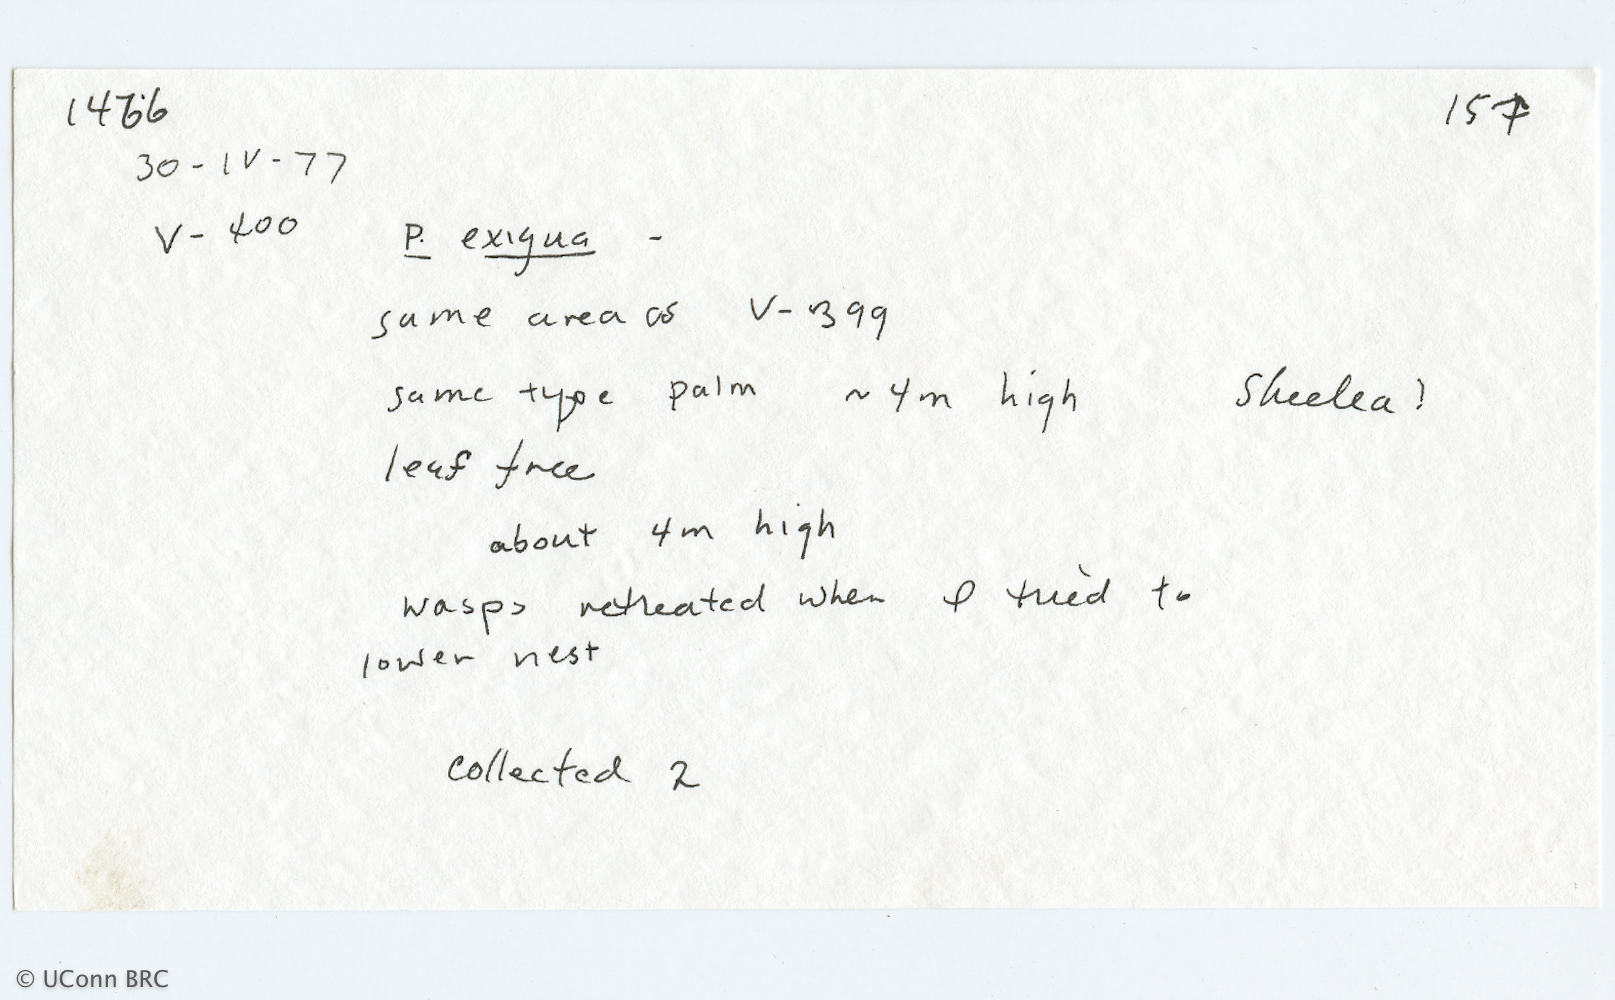 1466
157
30-IV-77
V-400 P. exigua -
same area as V-399
same type palm ~4m high Sheelea?
leaf free
about 4m high
wasps retreated when I tried to
lower nest
collected 2
© UConn BRC